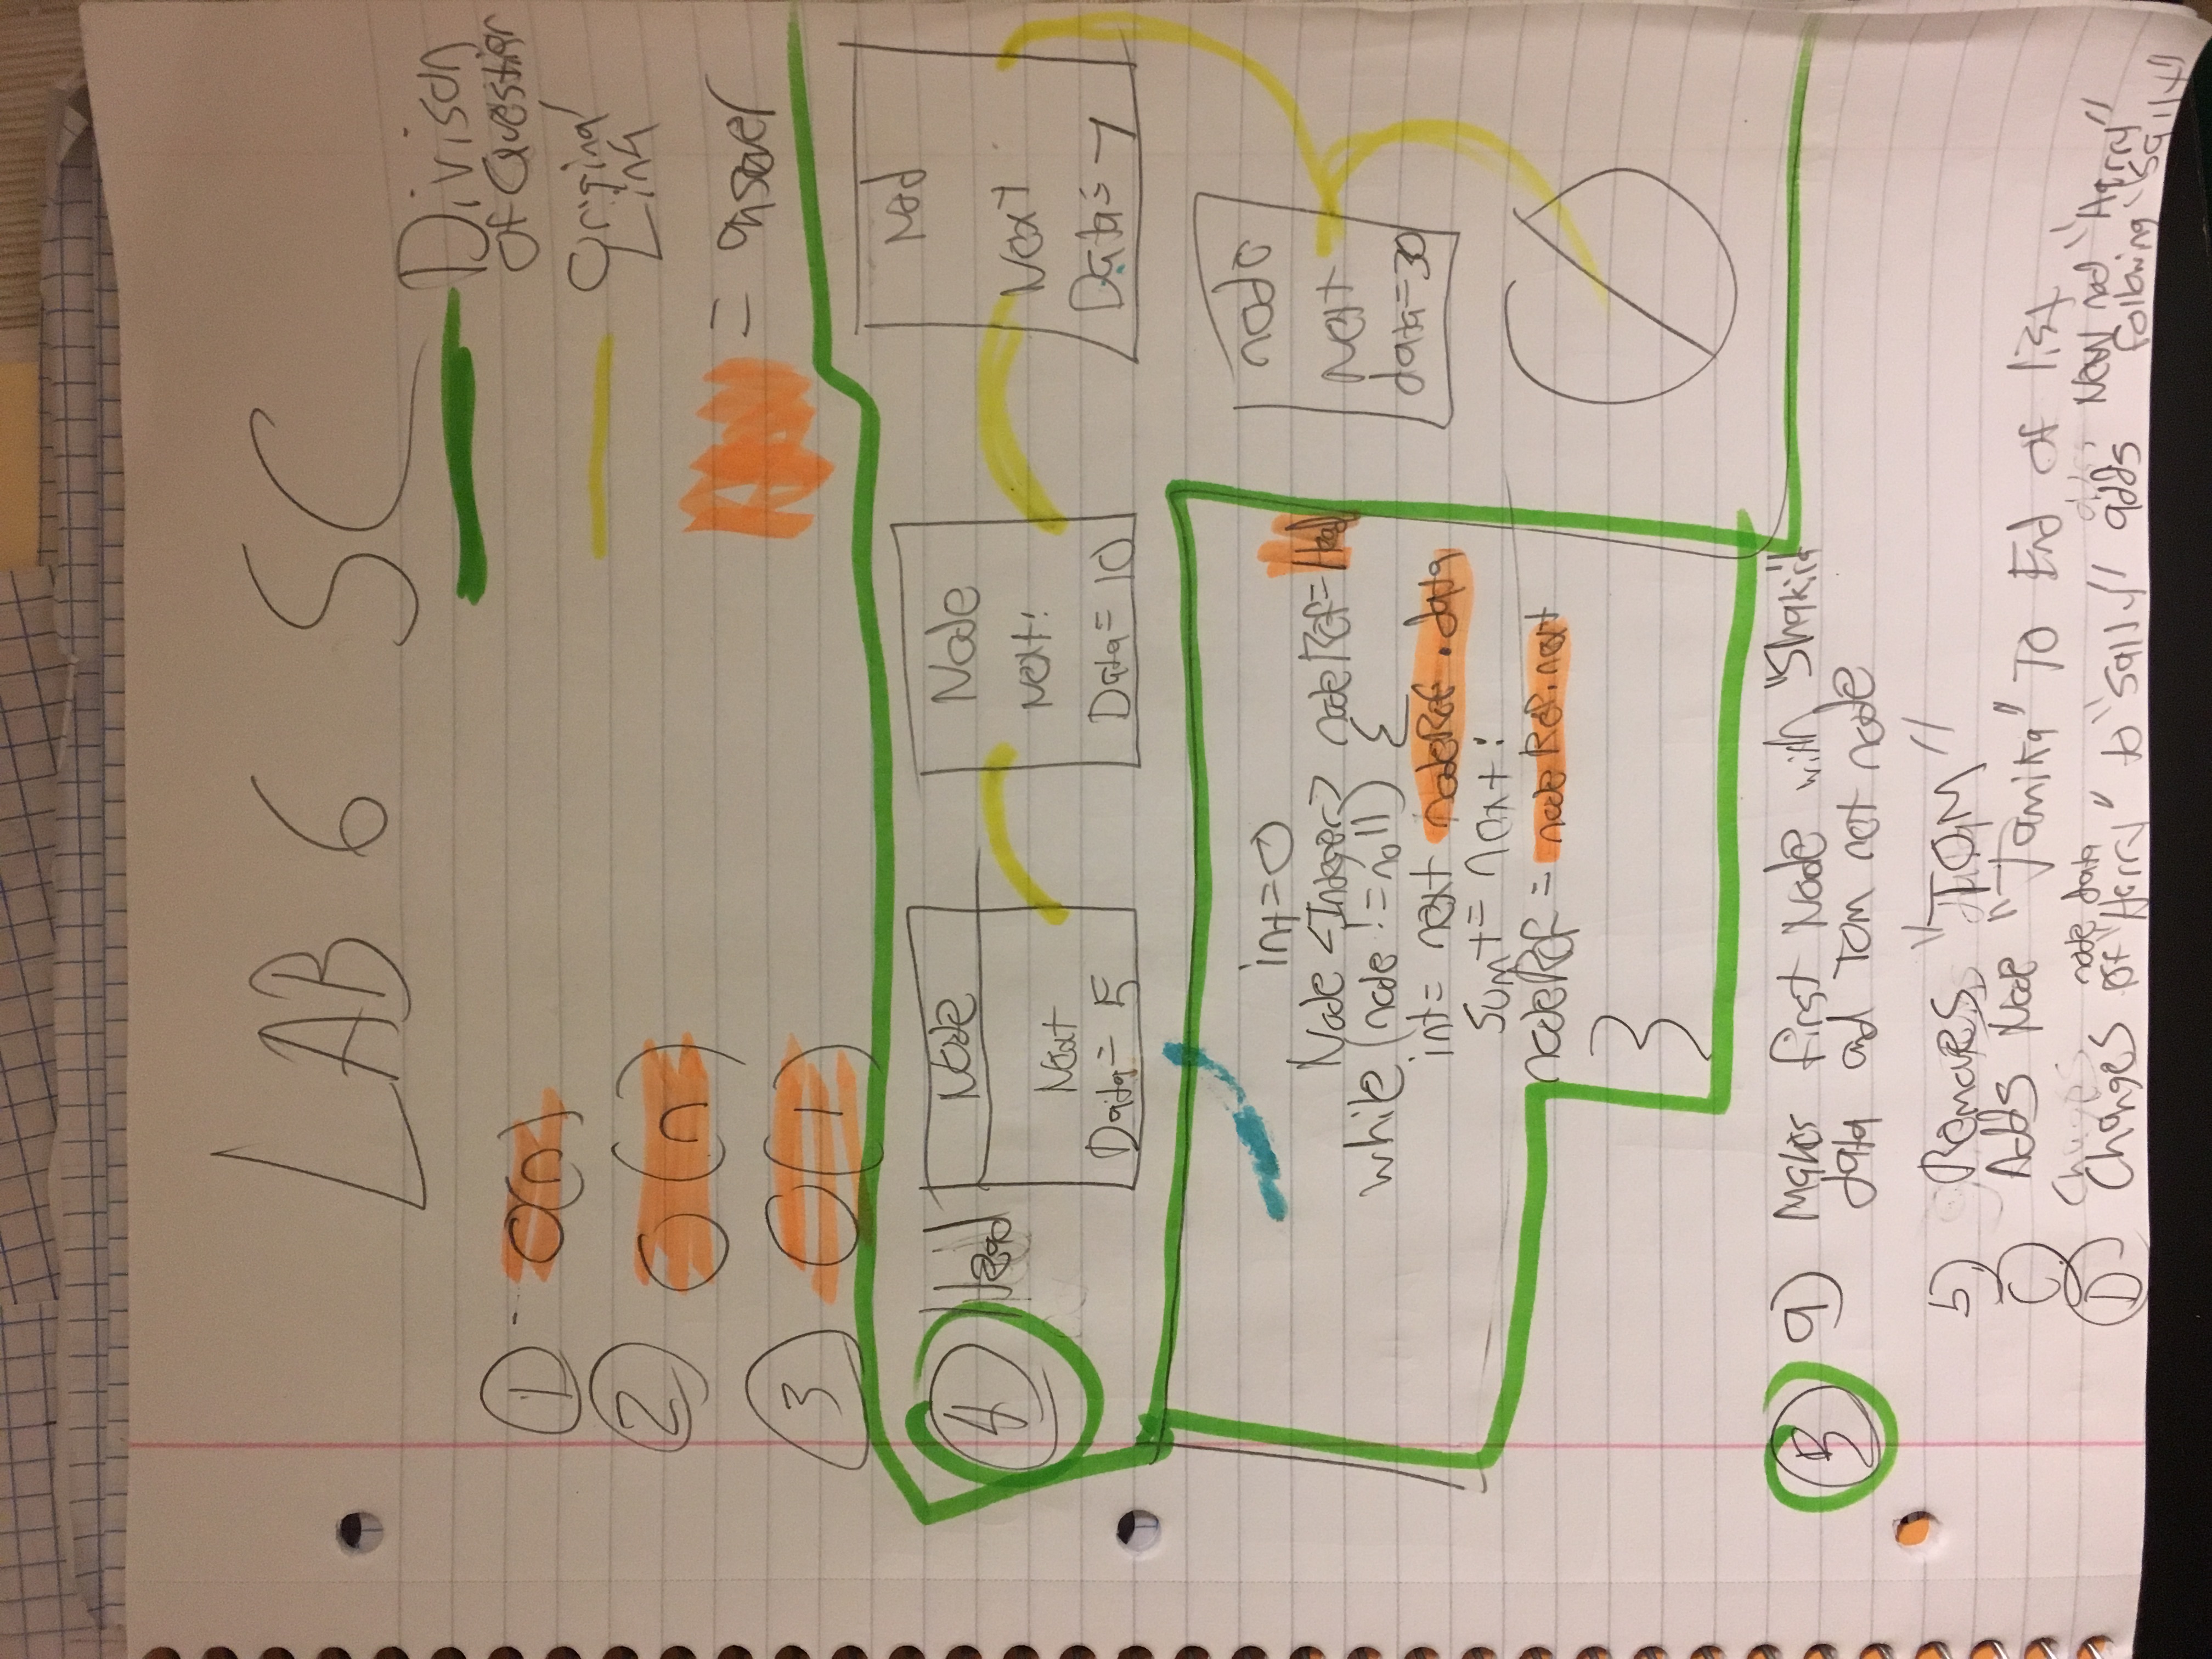 LAB 6 SC
Divison
of Question
Original
Link
= answer
1 - O(n)
2 O(n)
3 O(1)
4 Head
Node
Next
Data = 5
Node
Next:
Data = 10
Nod
Next
Data = 7
node
Next
data = 30
int = 0
Node <Integer> nodeRef = Head
while (node != null) {
int = next nodeRef.data
sum += next;
nodeRef = nodeRef.next
}
5 a) Makes first Node with "Shakira"
data and Tom net node
b) Removes "TOM"
C) Adds Node "Tamika" To End of list
D) Changes node data of "Harry" to "Sally" adds New nod "Harry"
following "Sally"